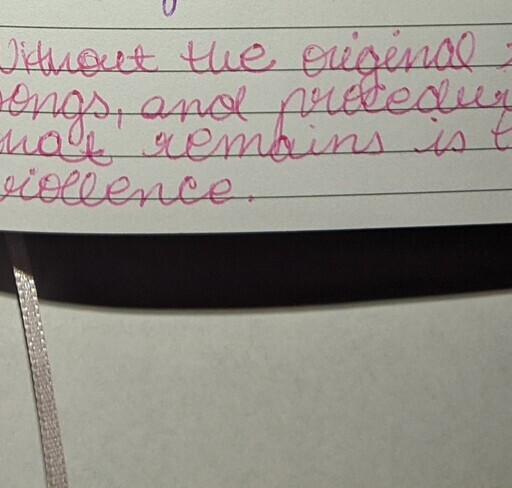 Without the original
ongs, and procedur
hat remains is t
violence.